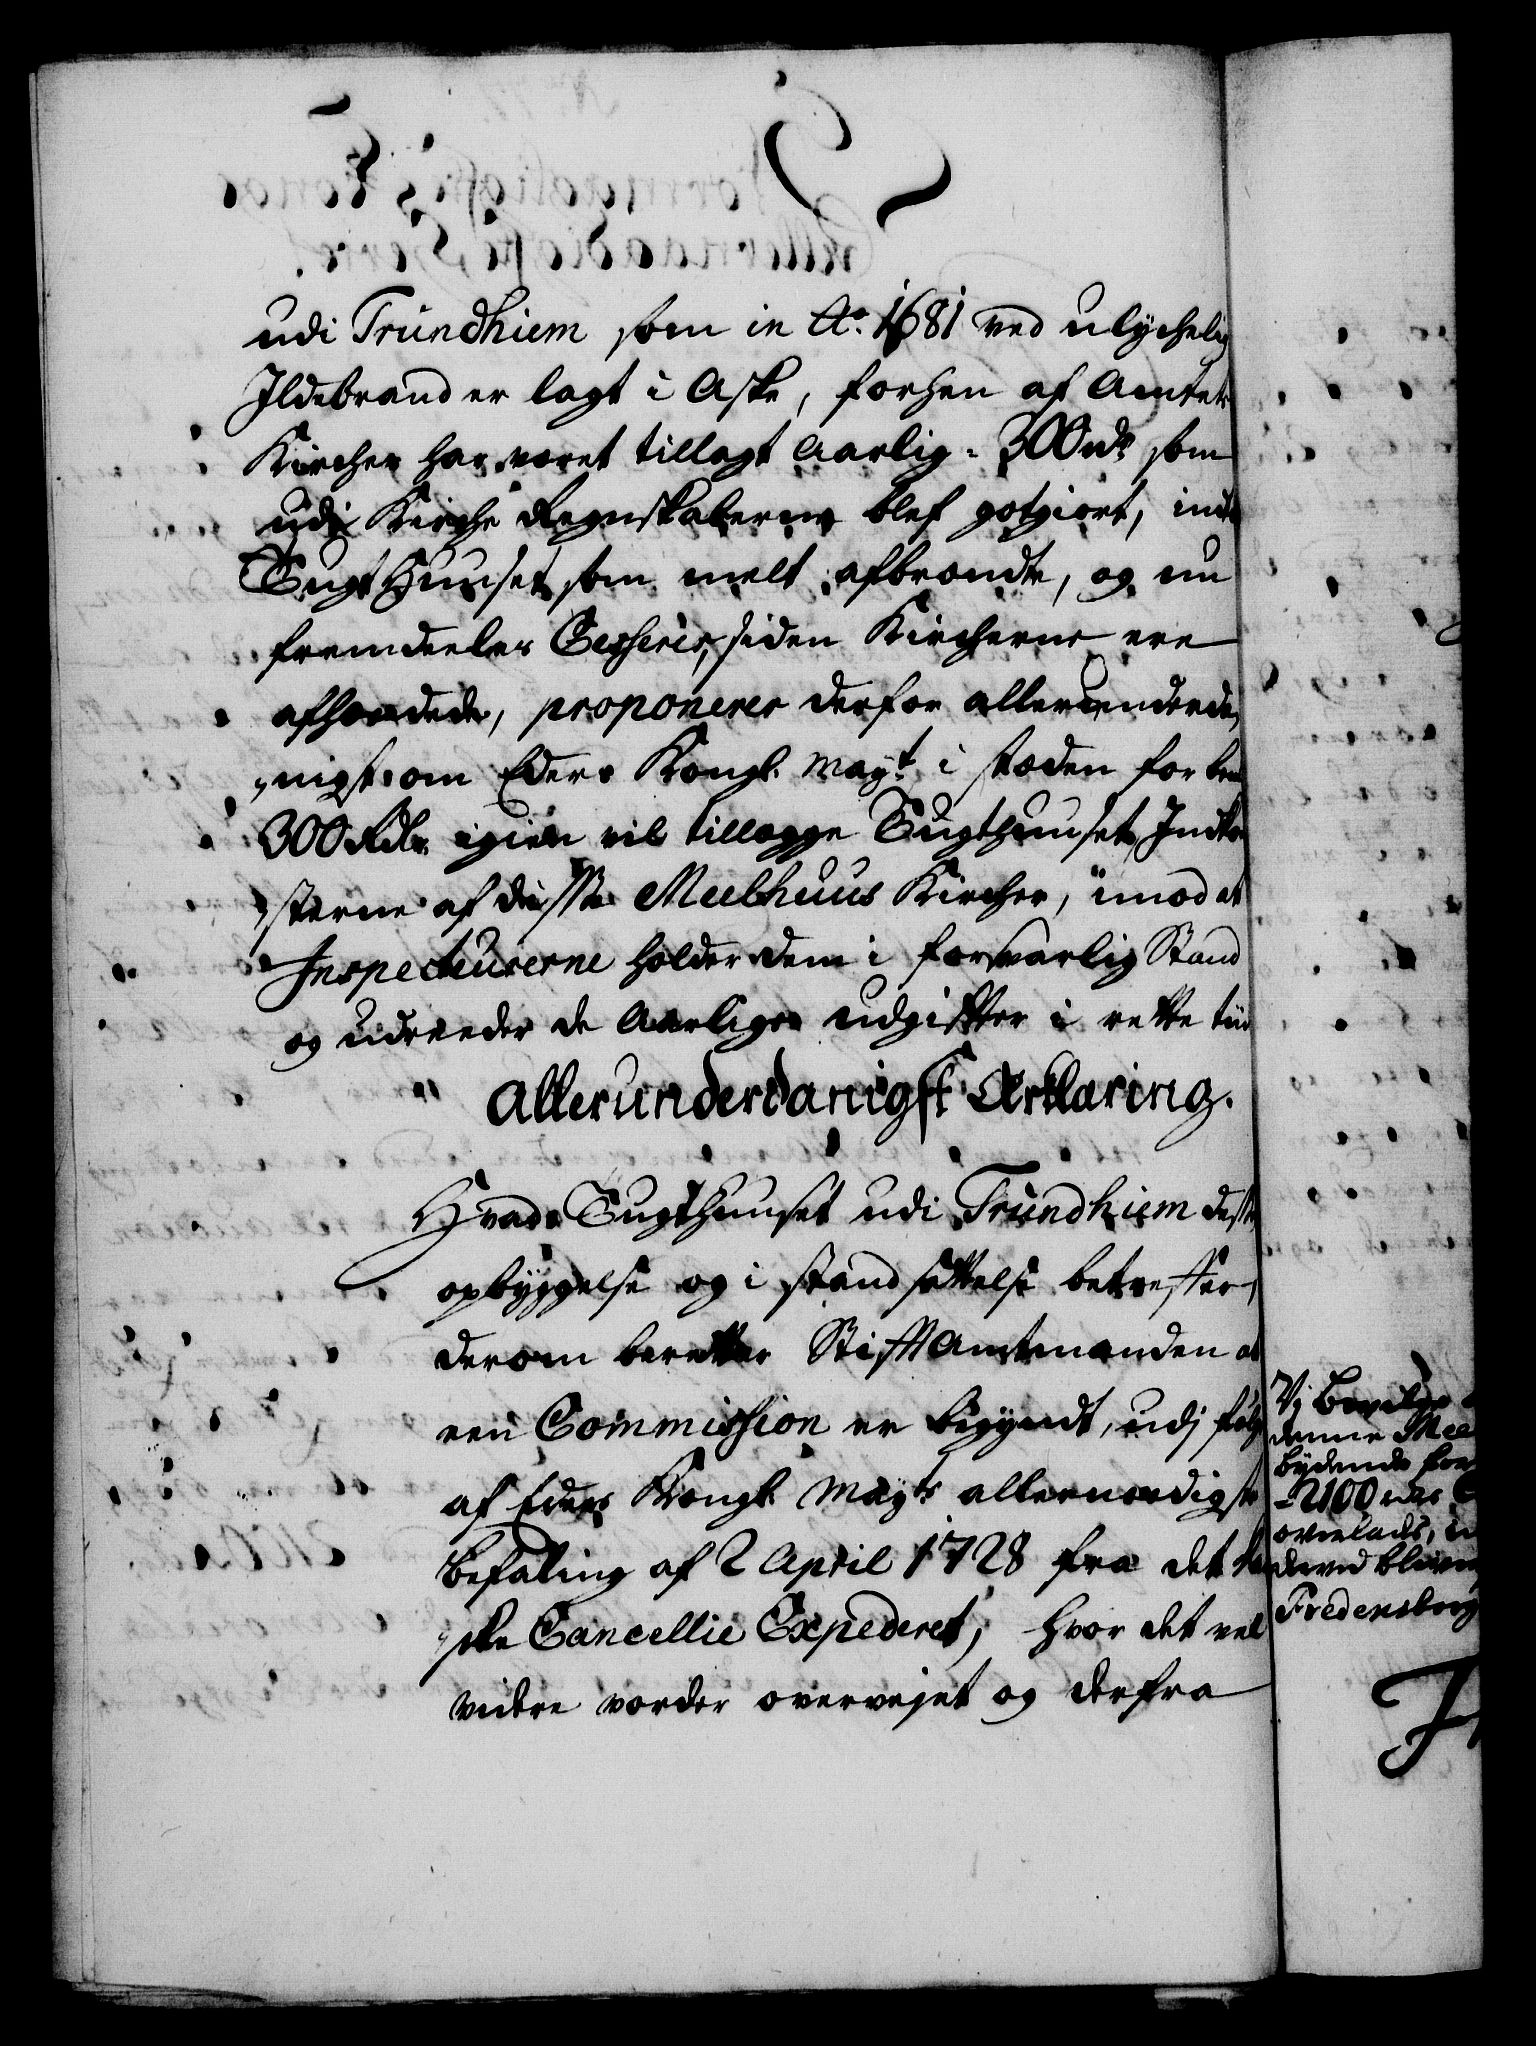 udi Trundhiem som in Ao. 1681 ved ulychelig
Ildebrand er lagt i Aske, forhen af Amtets
Kircher har været tillagt Aarlig = 300 rdr som
udj Kirche Regnskaberne blef gotgiort, indt
Tugthuuset som melt afbrændte, og nu
fremdeeles Cesserer, siden Kircherne ere
afhændede, proponerer derfor allerunderdæ,
,nigst om Eders Kongl. Mayt. i stæden for bem
300 Rdr. igien vil tillægge Tugthuuset Indkom
,sterne af disse Meelhuus Kircher, imod at
Inspecteurerne holder dem i forsvarlig Stand
og udreeder de Aarlige udgifter i rette tiid
Allerunderdanigst Erklæring.
Hvad Tugthuuset udi Trundhiem dets
opbyggelse og i stand sættelse betreffer,
derom beretter Stiftamtmanden at
een Commission er begyndt, udj følge
af Eders Kongl. Mayts allernaadigste
befaling af 2 April 1728 fra det Dan
,ske Cancellie Expederet, hvor det vel
videre vorder overvejet og derfra
Vj Bevilge
denne Mee
bydende for
- 2100 rdr
overlades, i
derved bliver
Fredensborg